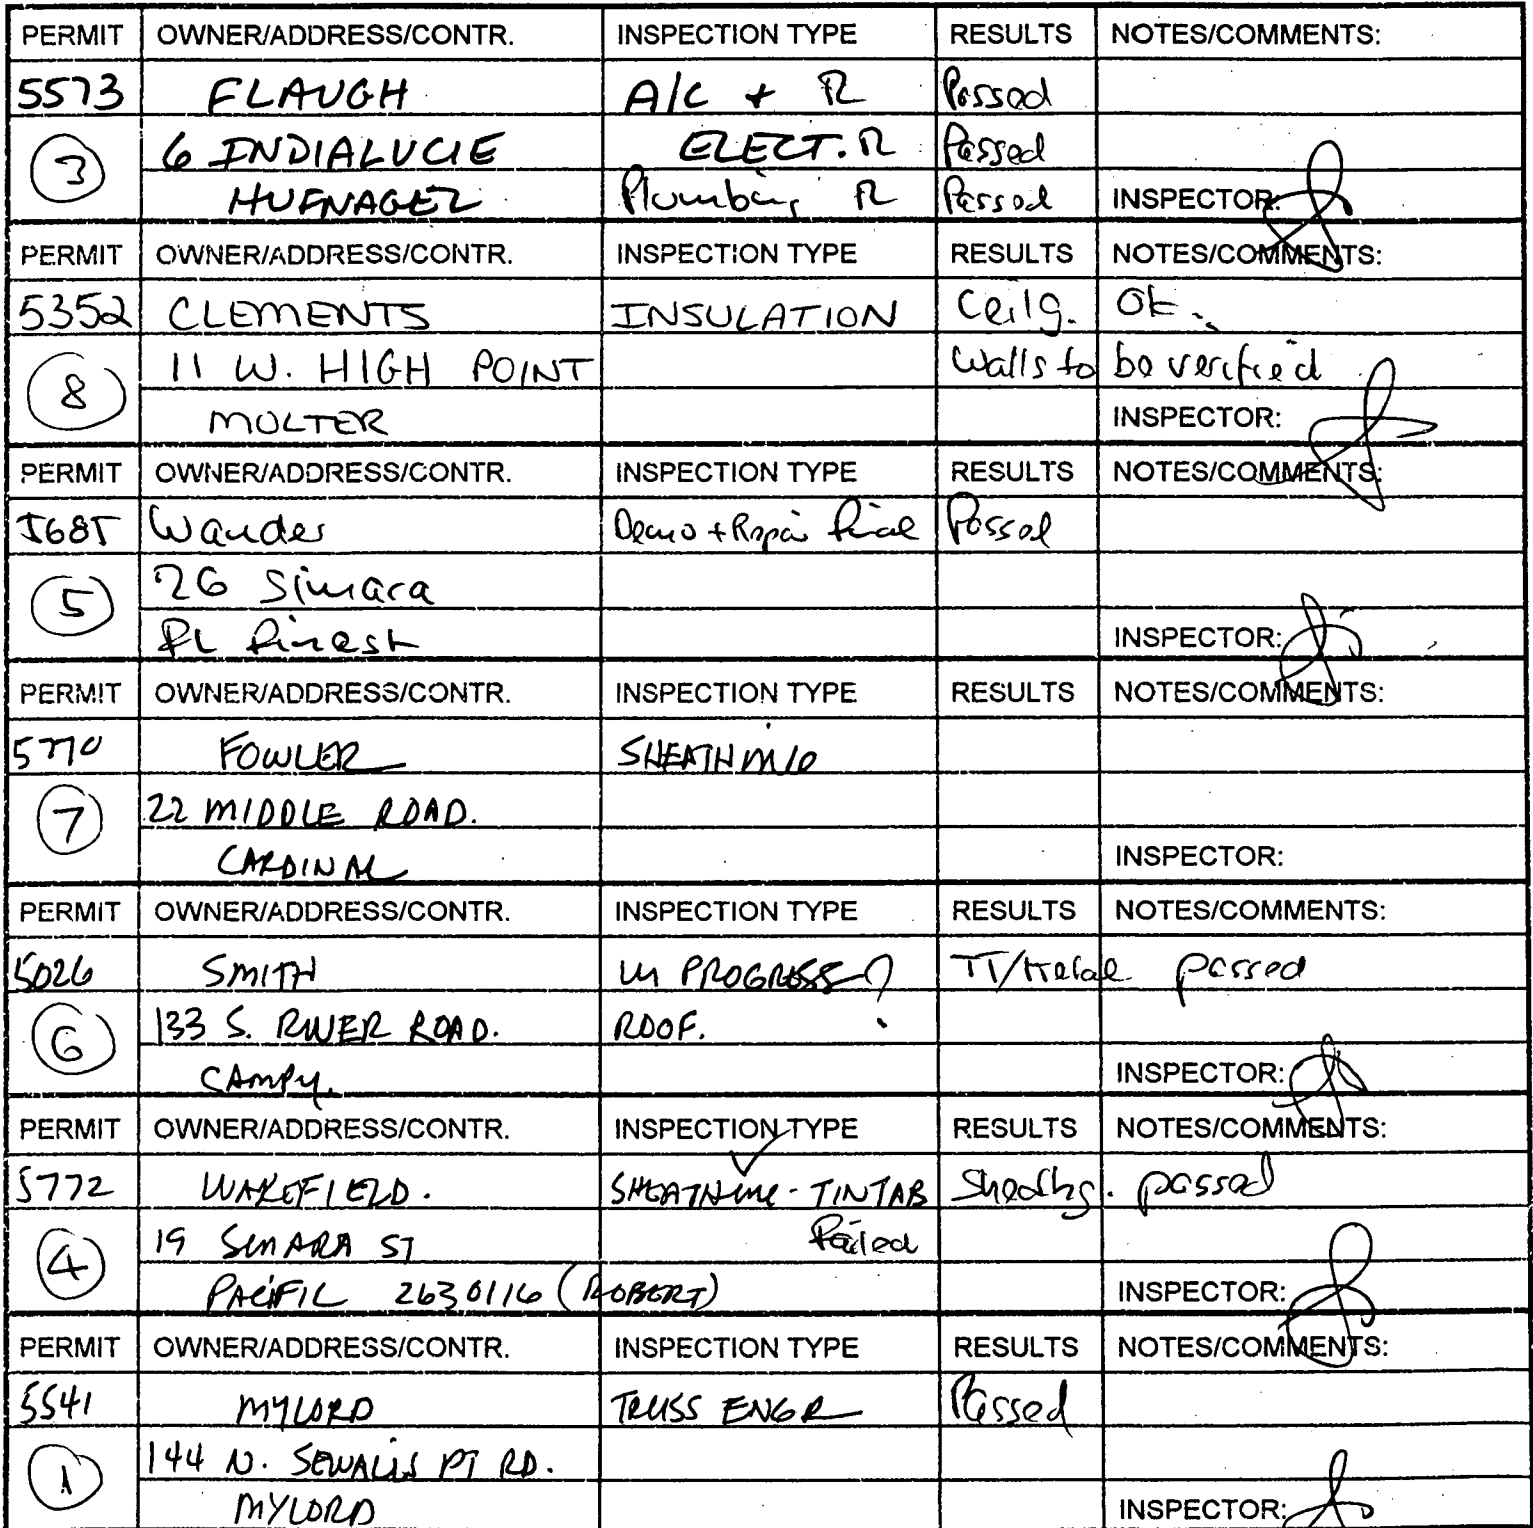 PERMIT OWNER/ADDRESS/CONTR. INSPECTION TYPE RESULTS NOTES/COMMENTS:
5573 FLAUGH A/C + R Passed
3 6 INDIALUCIE ELECT. R Passed
HUFNAGEL Plumbing R Passed INSPECTOR:
PERMIT OWNER/ADDRESS/CONTR. INSPECTION TYPE RESULTS NOTES/COMMENTS:
5352 CLEMENTS INSULATION Ceilg. OK.
8 11 W. HIGH POINT Walls to be verified
MOLTER INSPECTOR:
PERMIT OWNER/ADDRESS/CONTR. INSPECTION TYPE RESULTS NOTES/COMMENTS:
5685 Wander Demo + Repair final Passed
5 26 Simara
INSPECTOR:
PERMIT OWNER/ADDRESS/CONTR. INSPECTION TYPE RESULTS NOTES/COMMENTS:
5770 FOWLER SHEATHING
7 22 MIDDLE ROAD.
CARDINAL INSPECTOR:
PERMIT OWNER/ADDRESS/CONTR. INSPECTION TYPE RESULTS NOTES/COMMENTS:
5026 SMITH IN PROGRESS ? passed
6 133 S. RIVER ROAD. ROOF.
INSPECTOR:
PERMIT OWNER/ADDRESS/CONTR. INSPECTION TYPE RESULTS NOTES/COMMENTS:
5772 WAKEFIELD. SHEATHING - TINTAB Sheathg. passed
4 19 SIMARA ST Failed
PACIFIC 2630116 (ROBERT) INSPECTOR:
PERMIT OWNER/ADDRESS/CONTR. INSPECTION TYPE RESULTS NOTES/COMMENTS:
5541 MYLORD TRUSS ENGR Passed
1 144 N. SEWALLS PT RD.
MYLORD INSPECTOR: